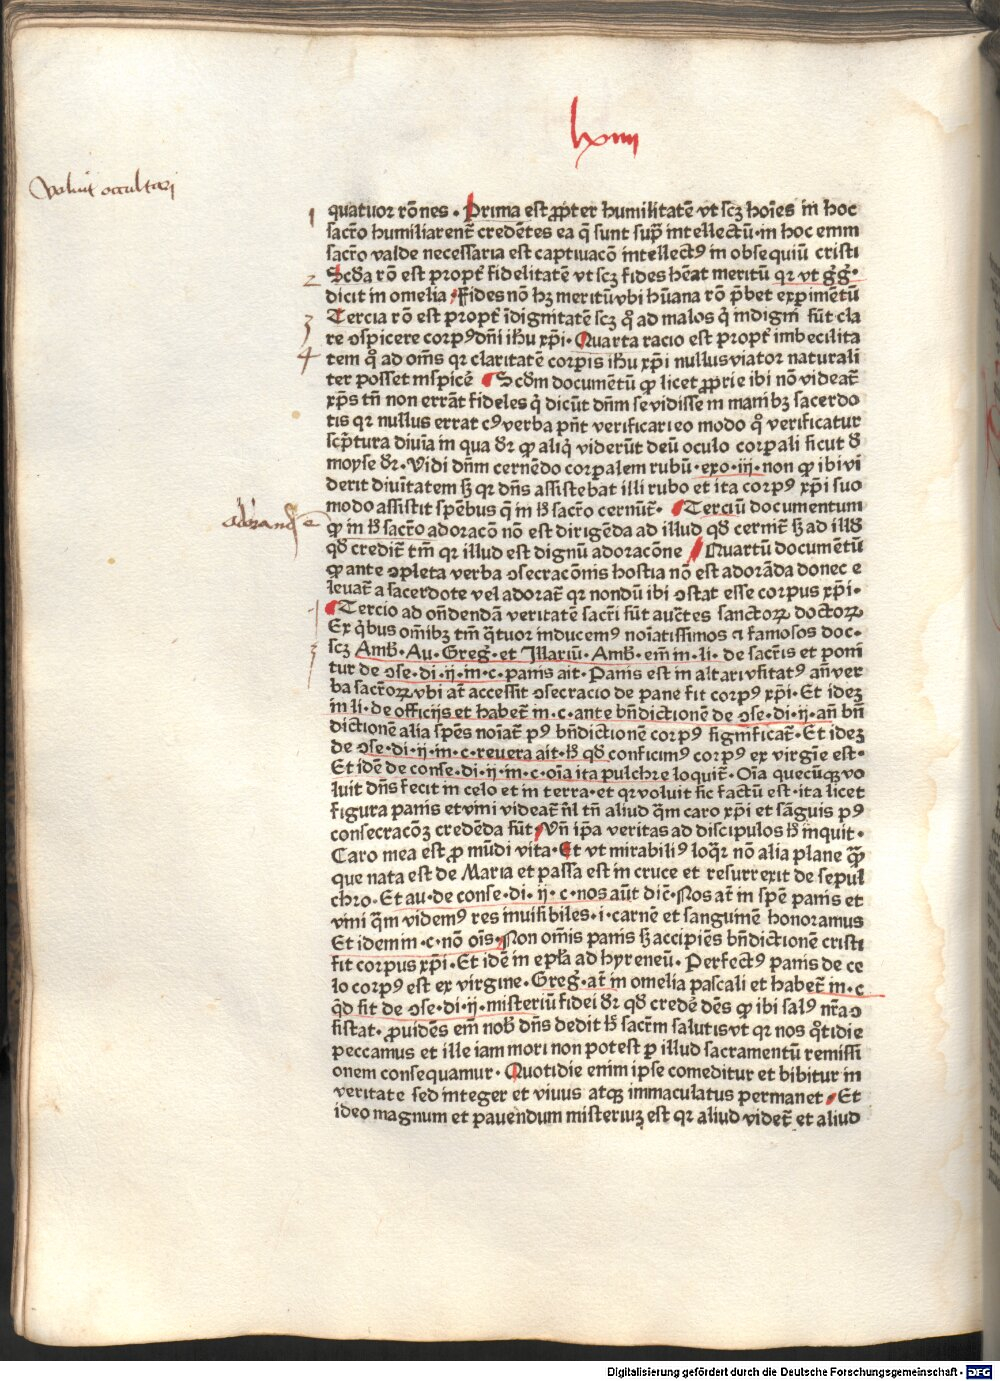 lxiiii
voluit occultari
1 quatuor rōnes · Prima est ꝓpter humilitatē vt scꝫ hoīes in hoc
sacr̄o humiliarent̄ credētes ea q̄ sunt sup̄ intellectū · in hoc enim
sacr̄o valde necessaria est captiuacō intellectꝰ in obsequiū cristi
2 Scd̄a rō est propt̄ fidelitatē vt scꝫ fides hēat meritū qr vt gḡ ·
dicit in omelia · Fides nō hꝫ meritū vbi hūana rō p̄bet exp̄imētū
3 Tercia rō est propt̄ īdignitatē scꝫ qͦ ad malos q̇ indigni sūt cla
re ↄspicere corpꝰ dn̄i ih̄u xp̄i · Quarta racio est propt̄ imbecilita
4 tem qͦ ad om̄s qr claritatē corpis ih̄u xp̄i nullus viator naturali
ter posset īnspicē Scd̄m documētū ꝙ licet ꝓprie ibi nō videat̄
xp̄s tn̄ non errāt fideles q̇ dicūt dn̄m se vidisse in manibꝫ sacerdo
tis qr nullus errat cꝰ verba pn̄t verificari eo modo qͦ verificatur
scp̄tura diuīa in qua dr̄ ꝙ aliq̇ viderūt deū oculo corp̄ali sicut de
moyse dr̄ · Vidi dn̄m cernēdo corp̄alem rubū · exo · iij · non ꝙ ibi vi
derit diuītatem sꝫ qr dn̄s assistebat illi rubo et ita corpꝰ xp̄i suo
modo assistit spēbus q̄ in h̄ sacr̄o cernūt̄ · Terciū documentum
adorandū
ꝙ in h̄ sacr̄o adoracō nō est dirigēda ad illud qd̄ cernit̄ sꝫ ad illd̄
qd̄ credit̄ tm̄ qr illud est dignū adoracōne Quartū documētū
ꝙ ante ↄpleta verba ↄsecracōnis hostia nō est adorāda donec e
leuat̄ a sacerdote vel adorat̄ qr nondū ibi ↄstat esse corpus xp̄i ·
Tercio ad on̄dendā veritatē sacr̄i sūt auct̄es sanctoꝝ doctoꝝ
Ex q̇bus om̄ibꝫ tm̄ q̄tuor inducemꝰ noīatissimos et famosos doc ·
scꝫ Amb̄ · Au · Greḡ · et Illariū · Amb̄ · em̄ in · li · de sacr̄is et poni
tur de ↄse · di · ij · in · c · panis ait · Panis est in altari vsitatꝰ an̄ ver
ba sacr̄oꝝ vbi at̄ accessit ↄsecracio de pane fit corpꝰ xp̄i · Et idez
in li · de officijs et habet̄ in · c · ante bn̄dictionē de ↄse · di · ij · an̄ bn̄
dictionē alia spēs noīat̄ pꝰ bn̄dictionē corpꝰ significat̄ · Et idez
de ↄse · di · ij · in · c · reuera ait · h̄ qd̄ conficimꝰ corpꝰ ex virgīe est ·
Et idē de conse · di · ij · in · c · oīa ita pulchre loquit̄ · Oīa quecūqꝫ vo
luit dn̄s fecit in celo et in terra · et qr voluit sic factū est · ita licet
figura panis et vini videat̄ n̄l tn̄ aliud q̄m caro xp̄i et sāguis pꝰ
consecracōꝫ credēda sūt · Vn̄ ip̄a veritas ad discipulos h̄ inquit ·
Caro mea est ꝓ mūdi vita · Et vt mirabiliꝰ loq̄r nō alia plane q̄ꝫ
que nata est de Maria et passa est in cruce et resurrexit de sepul
chro · Et au · de conse · di · ij · c · nos aūt dic̄ · Nos at̄ in spē panis et
vini q̄m videmꝰ res inuisibiles · i · carnē et sanguinē honoramus
Et idem in · c · nō oīs · Non om̄is panis sꝫ accipiēs bn̄dictionē cristi
fit corpus xp̄i · Et idē in epl̄a ad hyreneū · Perfectꝰ panis de ce
lo corpꝰ est ex virgine · Greḡ · at̄ in omelia pascali et habet̄ in · c
q̇d sit de ↄse · di · ij · misteriū fidei dr̄ qd̄ credē dēs ꝙ ibi salꝰ nr̄a ↄ
sistat · ꝓuidēs em̄ nob̄ dn̄s dedit h̄ sacr̄m salutis vt qr nos qͦtidie
peccamus et ille iam mori non potest ꝑ illud sacramentū remissi
onem consequamur · Quotidie enim ipse comeditur et bibitur in
veritate sed integer et viuus atqꝫ immaculatus permanet · Et
ideo magnum et pauendum misteriuꝫ est qr aliud videt̄ et aliud
Digitalisierung gefördert durch die Deutsche Forschungsgemeinschaft - DFG